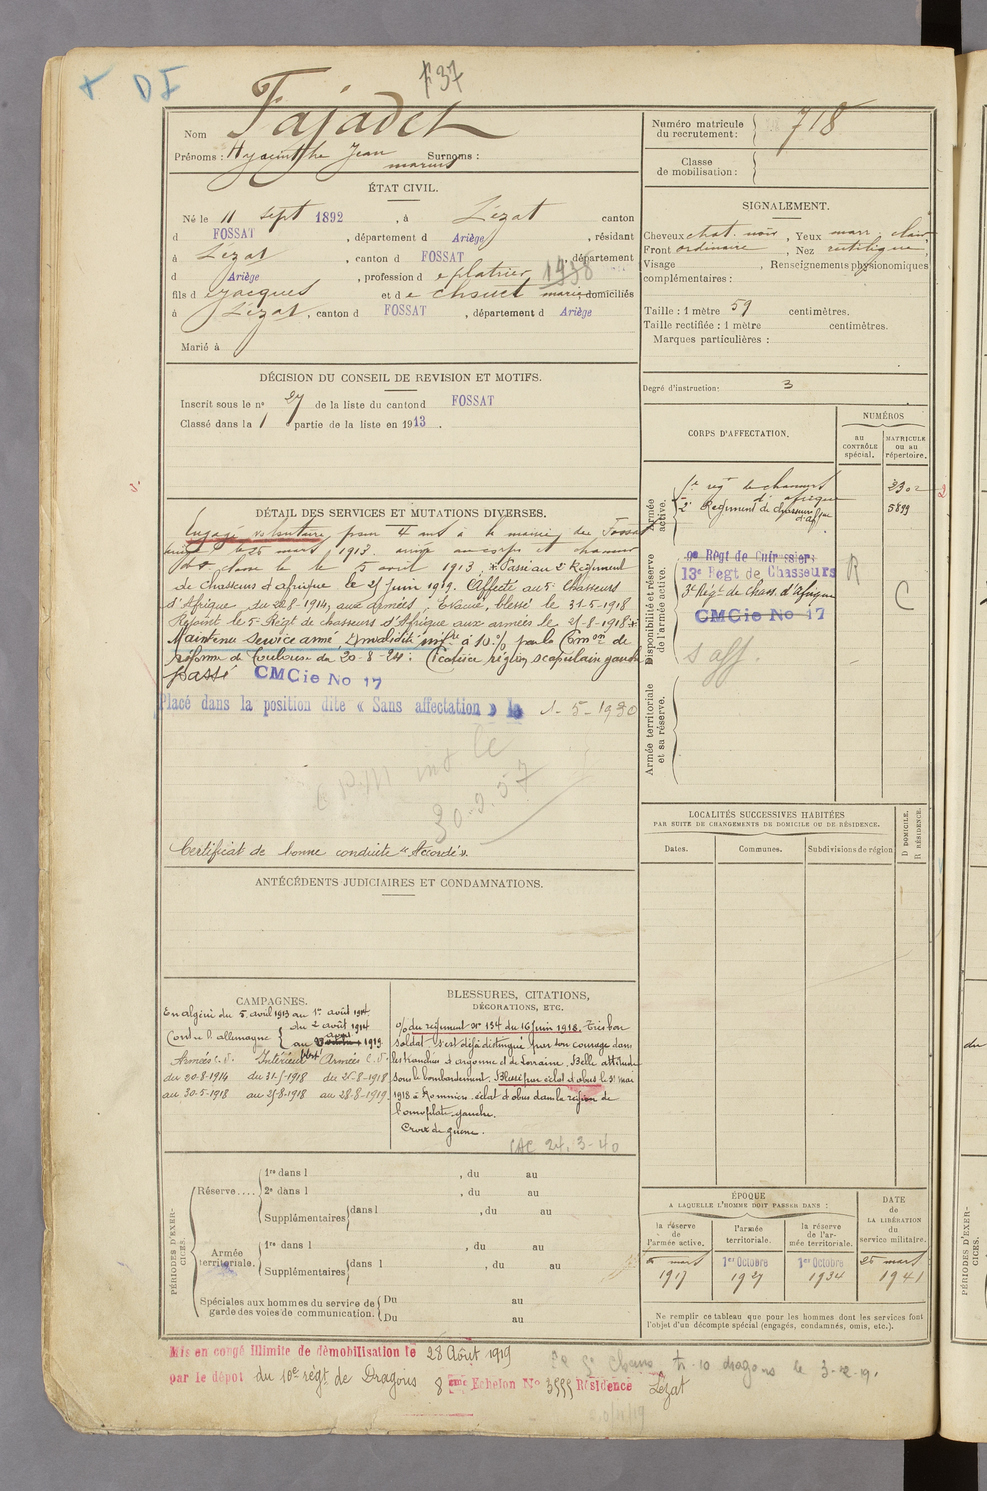 DF
F 37
Nom Fajadet
Prénoms : Hyacinthe Jean Surnoms :
marius
Numéro matricule
du recrutement : 718
Classe
de mobilisation :
ÉTAT CIVIL.
Né le 11 Sept 1892, à Lézat canton
d FOSSAT, département d Ariège, résidant
à Lézat, canton d FOSSAT, département
d Ariège, profession de platrier 1938
fils de Jacques et de marie domiciliés
à Lézat, canton d FOSSAT, département d Ariège
Marié à
SIGNALEMENT.
Cheveux chat. noir, Yeux marr. clair
Front ordinaire, Nez rectiligne
Visage , Renseignements physionomiques
complémentaires :
Taille : 1 mètre 59 centimètres.
Taille rectifiée : 1 mètre centimètres.
Marques particulières :
Degré d'instruction : 3
DÉCISION DU CONSEIL DE REVISION ET MOTIFS.
Inscrit sous le n° 27 de la liste du canton d FOSSAT
Classé dans la 1e partie de la liste en 1913.
DÉTAIL DES SERVICES ET MUTATIONS DIVERSES.
Engagé volontaire pour 4 ans à la mairie du Fossat
le 25 mars 1913. arrivé au corps et chasseur
de classe le 5 avril 1913. Passé au 2e Régiment
de chasseurs d'afrique le 21 juin 1919. Affecté au 5e Chasseurs
d'Afrique du 20-8-1914, aux armées, Evacué, blessé le 31-5-1918
Rejoint le 5e Régt de chasseurs d'Afrique aux armées le 25-8-1918
Maintenu service armé, Invalidité infre à 10 % par la Comon de
réforme de Toulouse du 20-8-24 : Cicatrice région scapulaire gauche
passé CMCie No 17
Placé dans la position dite « Sans affectation » le 1-5-1930
30-9-57
Certificat de bonne conduite "Accordé".
CORPS D'AFFECTATION.
NUMÉROS
au
CONTRÔLE
spécial.
MATRICULE
ou au
répertoire.
Armée
active.
1e régt de chasseurs
d'afrique 2302
2e Régiment de chasseurs
d'af que 5899
Disponibilité et réserve
de l'armée active.
9e Régt de Cuirassiers
13e Régt de Chasseurs R
3e Régt de Chass. d'Afrique
CMCie No 17 C
s aff.
Armée territoriale
et sa réserve.
LOCALITÉS SUCCESSIVES HABITÉES
PAR SUITE DE CHANGEMENTS DE DOMICILE OU DE RÉSIDENCE.
Dates. Communes. Subdivisions de région
D DOMICILE.
R RÉSIDENCE.
ANTÉCÉDENTS JUDICIAIRES ET CONDAMNATIONS.
CAMPAGNES.
En algérie du 5 avril 1913 au 1er août 1914
Contre l'allemagne du 2 août 1914
au 1919
Armées Intérieur blessé Armées
du 20-8-1914 du 31-5-1918 du 25-8-1918
au 30-5-1918 au 25-8-1918 au 28-8-1919
BLESSURES, CITATIONS,
DÉCORATIONS, ETC.
o/ du régiment n° 134 du 16 juin 1918. Très bon
soldat s'est déjà distingué par son courage dans
les tranchées d'argonne et de Lorraine. Belle attitude
sous le bombardement. Blessé par éclat d'obus le 31 mai
1918 à éclat d'obus dans la région de
l'omoplate gauche.
Croix de guerre.
CAC 24-3-40
PÉRIODES D'EXERCICES.
Réserve.... 1re dans l , du au
2e dans l , du au
Supplémentaires dans l , du au
Armée
territoriale. 1re dans l , du au
Supplémentaires dans l , du au
Spéciales aux hommes du service de
garde des voies de communication. Du au
Du au
ÉPOQUE
A LAQUELLE L'HOMME DOIT PASSER DANS :
la réserve
de
l'armée active.
l'armée
territoriale.
la réserve
de l'ar-
mée territoriale.
DATE
de
LA LIBÉRATION
du
service militaire.
mars 1917
1er Octobre 1927
1er Octobre 1934
25 mars 1941
Ne remplir ce tableau que pour les hommes dont les services font
l'objet d'un décompte spécial (engagés, condamnés, omis, etc.).
Mis en congé illimité de démobilisation le 28 Août 1919
par le dépot du 10e régt de Dragons 8 ème Echelon No 3555 Résidence Lézat
10 dragons le 3-12-19.
du
PÉRIODES D'EXER-
CICES.